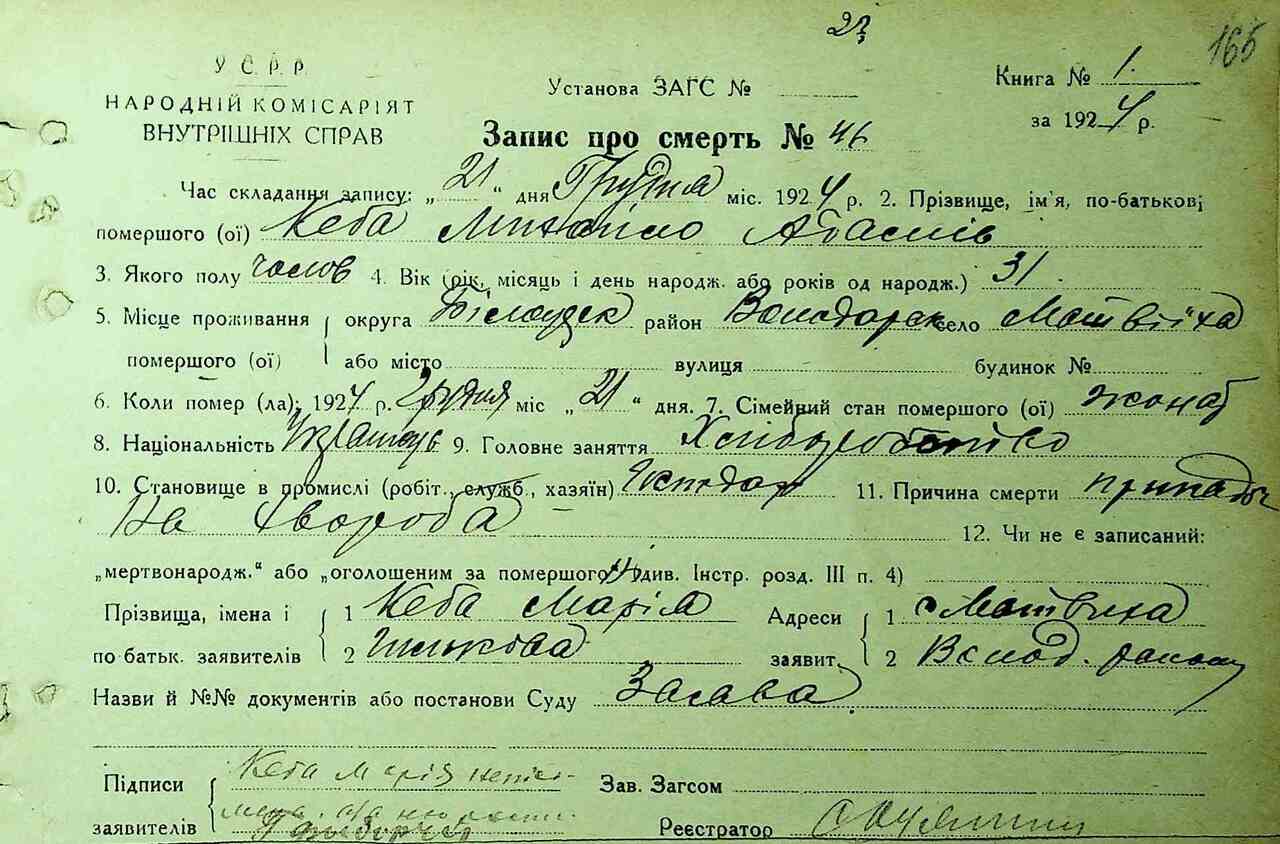 165
У С.Р.Р
НАРОДНІЙ КОМІСАРІЯТ
ВНУТРІШНІХ СПРАВ
Установа ЗАГС №
Книга № 1.
за 1924 р.
Запис про смерть № 46
Час складання запису: „21“ дня Грудня міс. 1924 р. 2. Прізвище, ім'я, по-батькові
помершого (ої) Кеба Михайло Адамів
3. Якого полу чолов 4. Вік (рік, місяць і день народж. або років од народж.) 31.
5. Місце проживання округа Білоцерк район Володарск село Матвіїха
помершого (ої) або місто вулиця будинок №
6. Коли помер (ла): 1924 р. Грудня міс „21“ дня. 7. Сімейний стан помершого (ої) жонат
8. Національність 9. Головне заняття Хліборобство
10. Становище в промислі (робіт., служб., хазяїн) Господар 11. Причина смерти припадоч
на хвороба 12. Чи не є записаний:
„мертвонародж.“ або „оголошеним за помершого“ (див. Інстр. розд. III п. 4)
Прізвища, імена і 1 Кеба Марія Адреси 1 с Матвіиха
по батьк. заявителів 2 заявит. 2 Волод. району
Назви й №№ документів або постанови Суду Заява
Підписи Кеба Марія непись- Зав. Загсом
заявителів Реєстратор